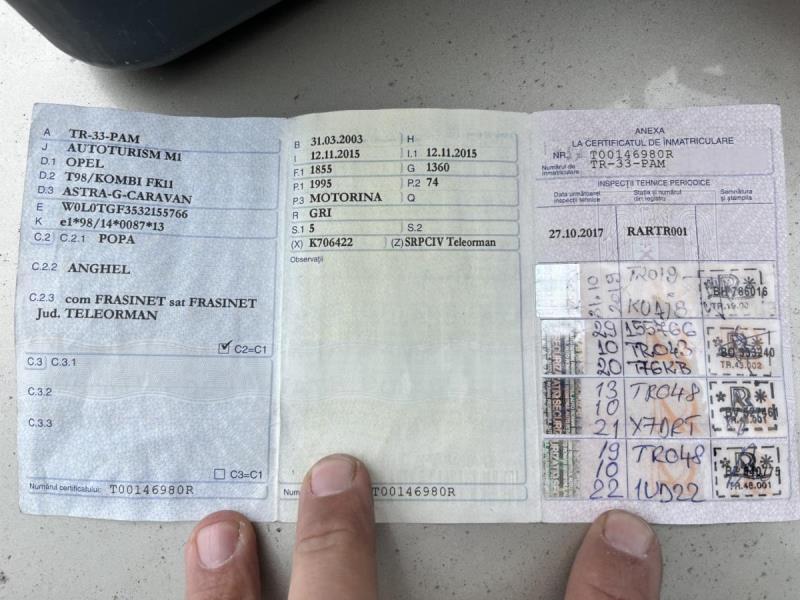 A TR-33-PAM
J AUTOTURISM M1
D.1 OPEL
D.2 T98/KOMBI FK11
D.3 ASTRA-G-CARAVAN
E W0L0TGF3532155766
K e1*98/14*0087*13
C.2 C.2.1 POPA
C.2.2 ANGHEL
C.2.3 com FRASINET sat FRASINET
Jud. TELEORMAN
C2=C1
C.3 C.3.1
C.3.2
C.3.3
C3=C1
Numărul certificatului: T00146980R
B 31.03.2003 H
I 12.11.2015 I.1 12.11.2015
F.1 1855 G 1360
P.1 1995 P.2 74
P.3 MOTORINA Q
R GRI
S.1 5 S.2
(X) K706422 (Z) SRPCIV Teleorman
Observații
T00146980R
ANEXA
LA CERTIFICATUL DE INMATRICULARE
NR. T00146980R
Numărul de înmatriculare TR-33-PAM
INSPECȚII TEHNICE PERIODICE
Data următoarei inspecții tehnice
Stația și numărul din registru
Semnătura și ștampila
27.10.2017 RARTR001
31.10 2019 TR019
BH 786016
29 10 20 155766 TR043 T76KB
TR.43.002
13 10 21 TR048 X7DRT
19 10 22 TR048 1UD22
TR.48.001